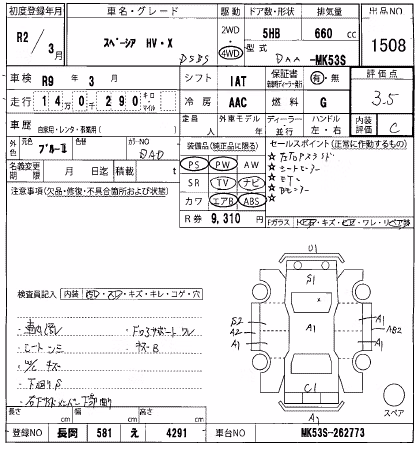 初度登録年月
R2/3月
車名・グレード
スペーシア HV・X
DSBS
駆動
2WD
4WD
ドア数・形状
5HB
排気量
660 cc
型式
DAA-MK53S
出品NO
1508
車検 R9年 3月
シフト IAT
保証書
有・無
評価点
3.5
走行 14万0千290
キロ・マイル
冷房 AAC
燃料 G
内装評価 C
車歴
自家用・レンタ・教習用( )
定員 人
外車モデル 年
ディーラー 並行
ハンドル 左・右
外色
元色 ブルーⅡ
色替
カラーNO
名義変更期限 月 日迄
積載 t
装備品(純正品に限る)
PS PW AW
SR TV ナビ
カワ エアB ABS
R券 9,310 円
セールスポイント(正常に作動するもの)
☆
☆シートヒーター
☆ETC
☆
☆
注意事項(欠品・修復・不具合箇所および状態)
検査員記入
内装
・キズ・キレ・コゲ・穴
シートシミ
キズ
下回りS
ドアミラーサポートワレ
キズB
Fガラス
・キズ・
・ワレ・リペア跡
U1
S1
A1
S2
A2
A1
A1
AB2
A1
C1
A1
スペア
長さ cm
幅 cm
高さ cm
登録NO 長岡 581 え 4291
車台NO MK53S-262773